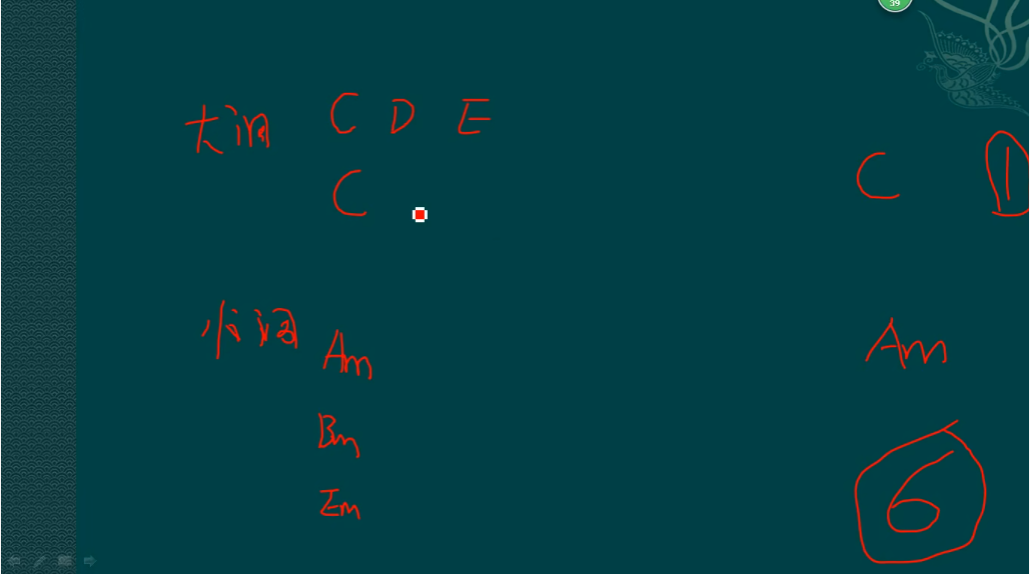 39
大调 C D E
C
C 1
小调 Am
Bm
Em
Am
6